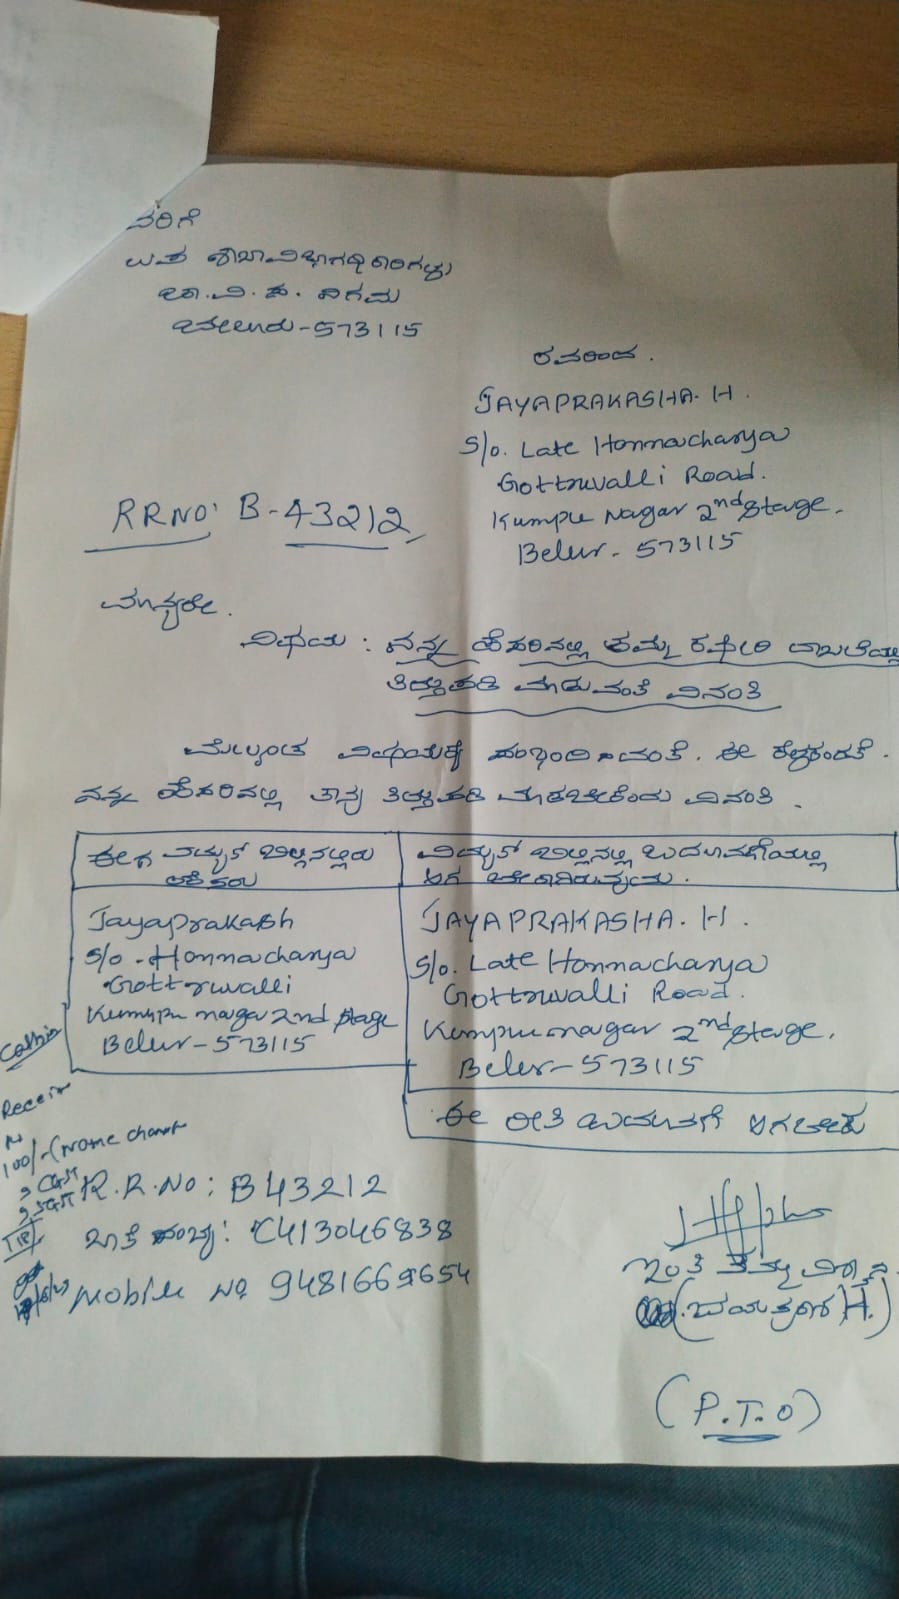 ರವರಿಗೆ
ಉಪ ಶಾಖಾ ವಿಭಾಗಾಧಿಕಾರಿಗಳು
ಚಾ.ವಿ.ಸ. ನಿಗಮ
ಬೇಲೂರು-573115
ರವರಿಂದ.
JAYAPRAKASHA. H.
S/o. Late Honnacharya
Gottruvalli Road.
RRNO: B-43212
Kumpu Nagar 2nd Stage.
Belur - 573115
ಮಾನ್ಯರೇ.
ವಿಷಯ : ನನ್ನ ಹೆಸರಿನಲ್ಲಿ ತಮ್ಮ ಕಛೇರಿ ದಾಖಲೆಯಲ್ಲಿ
ತಿದ್ದುಪಡಿ ಮಾಡುವಂತೆ ವಿನಂತಿ
ಮೇಲ್ಕಂಡ ವಿಷಯಕ್ಕೆ ಸಂಬಂಧಿಸಿದಂತೆ. ಈ ಕೆಳಕಂಡಂತೆ.
ನನ್ನ ಹೆಸರಿನಲ್ಲಿ ತಾವು ತಿದ್ದುಪಡಿ ಮಾಡಬೇಕೆಂದು ವಿನಂತಿ.
ಈಗ ವಿದ್ಯುತ್ ಬಿಲ್ಲಿನಲ್ಲಿರುವ
ಹೆಸರು
ವಿದ್ಯುತ್ ಬಿಲ್ಲಿನಲ್ಲಿ ಬದಲಾವಣೆಯಲ್ಲಿ
ಆಗ ಬೇಕಾಗಿರುವುದು.
Jayaprakash
S/o - Honnacharya
Gottruvalli
Kumpu nagar 2nd stage
Belur-573115
JAYAPRAKASHA. H.
S/o. Late Honnacharya
Gottruvalli Road.
Kumpu nagar 2nd Stage.
Belur-573115
ಈ ರೀತಿ ಬದಲಾವಣೆ ಆಗಬೇಕು
Cashier
100/-(Name
CGST
SGST
R.R.No: B43212
ಖಾತೆ ಸಂಖ್ಯೆ: C413046838
Mobile No. 9481669654
ಇಂತಿ ತಮ್ಮ ವಿಶ್ವಾಸಿ
(ಜಯಪ್ರಕಾಶ H.)
(P.T.O)